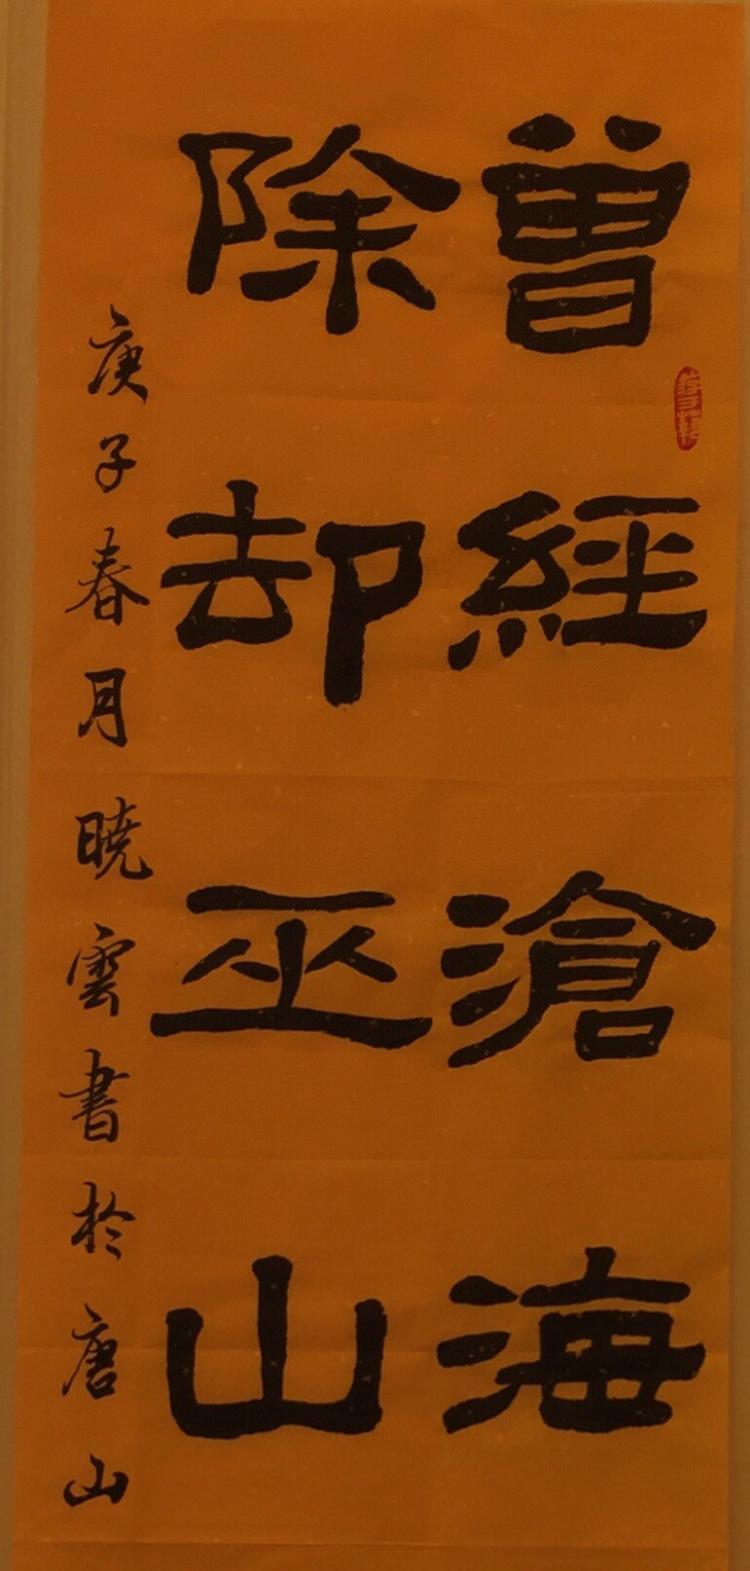 曾經滄海
除却巫山
庚子春月曉雲書於唐山